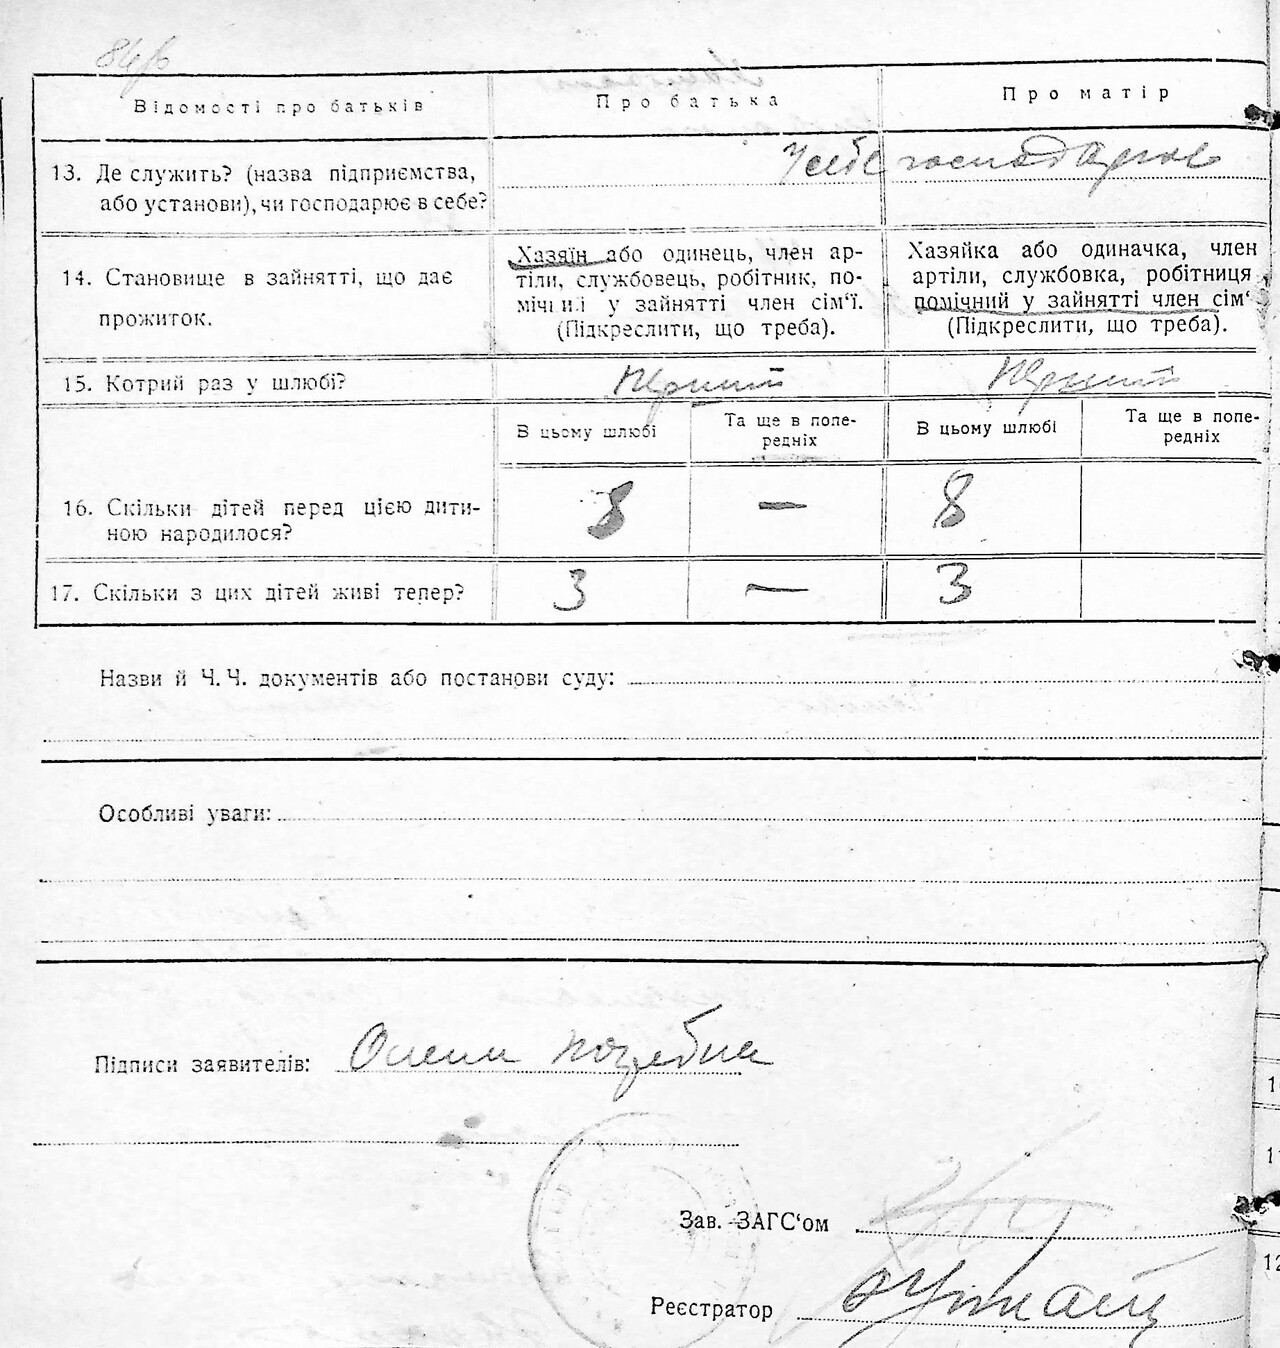 84зв
Відомості про батьків
Про батька
Про матір
13. Де служить? (назва підприємства,
або установи), чи господарює в себе?
У себе господарює
14. Становище в зайнятті, що дає
прожиток.
Хазяїн або одинець, член ар-
тіли, службовець, робітник, по-
мічний у зайнятті член сім'ї.
(Підкреслити, що треба).
Хазяйка або одиначка, член
артіли, службовка, робітниця
помічний у зайнятті член сім'
(Підкреслити, що треба).
15. Котрий раз у шлюбі?
Перший
Перший
В цьому шлюбі
Та ще в попе-
редніх
В цьому шлюбі
Та ще в попе-
редніх
16. Скільки дітей перед цією дити-
ною народилося?
8 — 8
17. Скільки з цих дітей живі тепер?
3 — 3
Назви й Ч. Ч. документів або постанови суду:
Особливі уваги:
Підписи заявителів:
Зав. ЗАГС'ом
Реєстратор
1
11
12